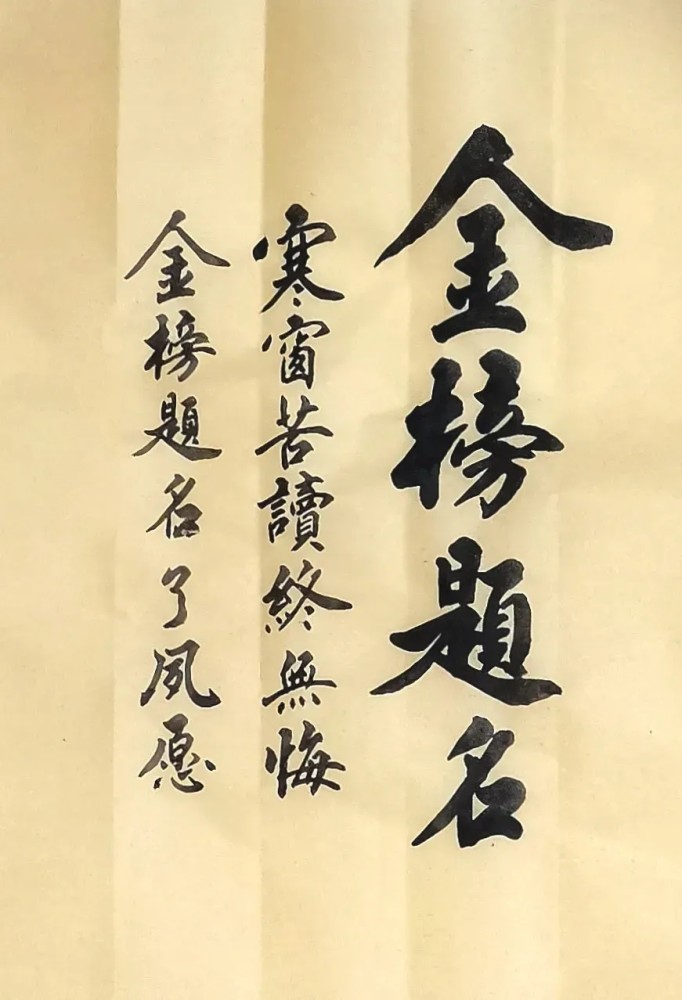 金榜題名
寒窗苦讀終無悔
金榜題名了夙愿